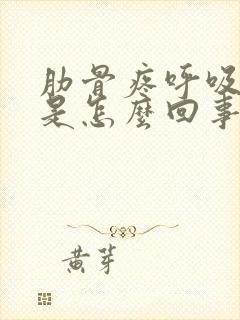 肋骨疼呼吸
是怎麼回事
黄芽